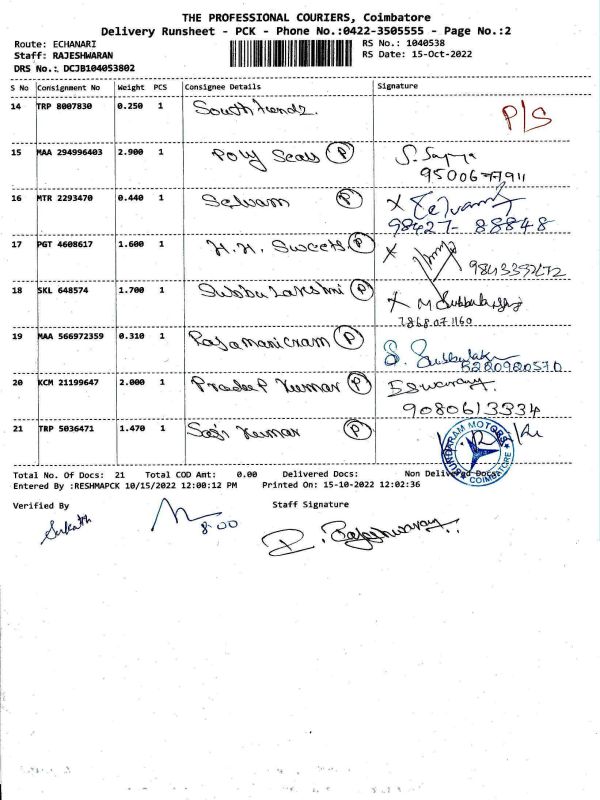 THE PROFESSIONAL COURIERS, Coimbatore
Delivery Runsheet - PCK - Phone No.:0422-3505555 - Page No.:2
Route: ECHANARI
RS No.: 1040538
Staff: RAJESHWARAN
RS Date: 15-Oct-2022
DRS No.: DCJB104053802
S No Consignment No Weight PCS Consignee Details Signature
14 TRP 8007830 0.250 1 South trendz. P/S
15 MAA 294996403 2.900 1 Poly Seals P
9500677911
16 MTR 2293470 0.440 1 Selvam P X Selvam
98427-88848
17 PGT 4608617 1.600 1 H.H. Sweets P X
9843357672
18 SKL 648574 1.700 1 Subbu Lakshmi P X M Subbulakshmi
7868071160
19 MAA 566972359 0.310 1 Rajamanicram P S. Subbulak
5220920570
20 KCM 21199647 2.000 1 Pradeep Kumar P Eswaray.
9080613334
21 TRP 5036471 1.470 1 Sasi Kumar P
SUNDARAM MOTORS
COIMBATORE
Total No. Of Docs: 21 Total COD Amt: 0.00 Delivered Docs: Non Delivered Docs:
Entered By :RESHMAPCK 10/15/2022 12:00:12 PM Printed On: 15-10-2022 12:02:36
Verified By Staff Signature
8:00
R. Rajeshwaray.